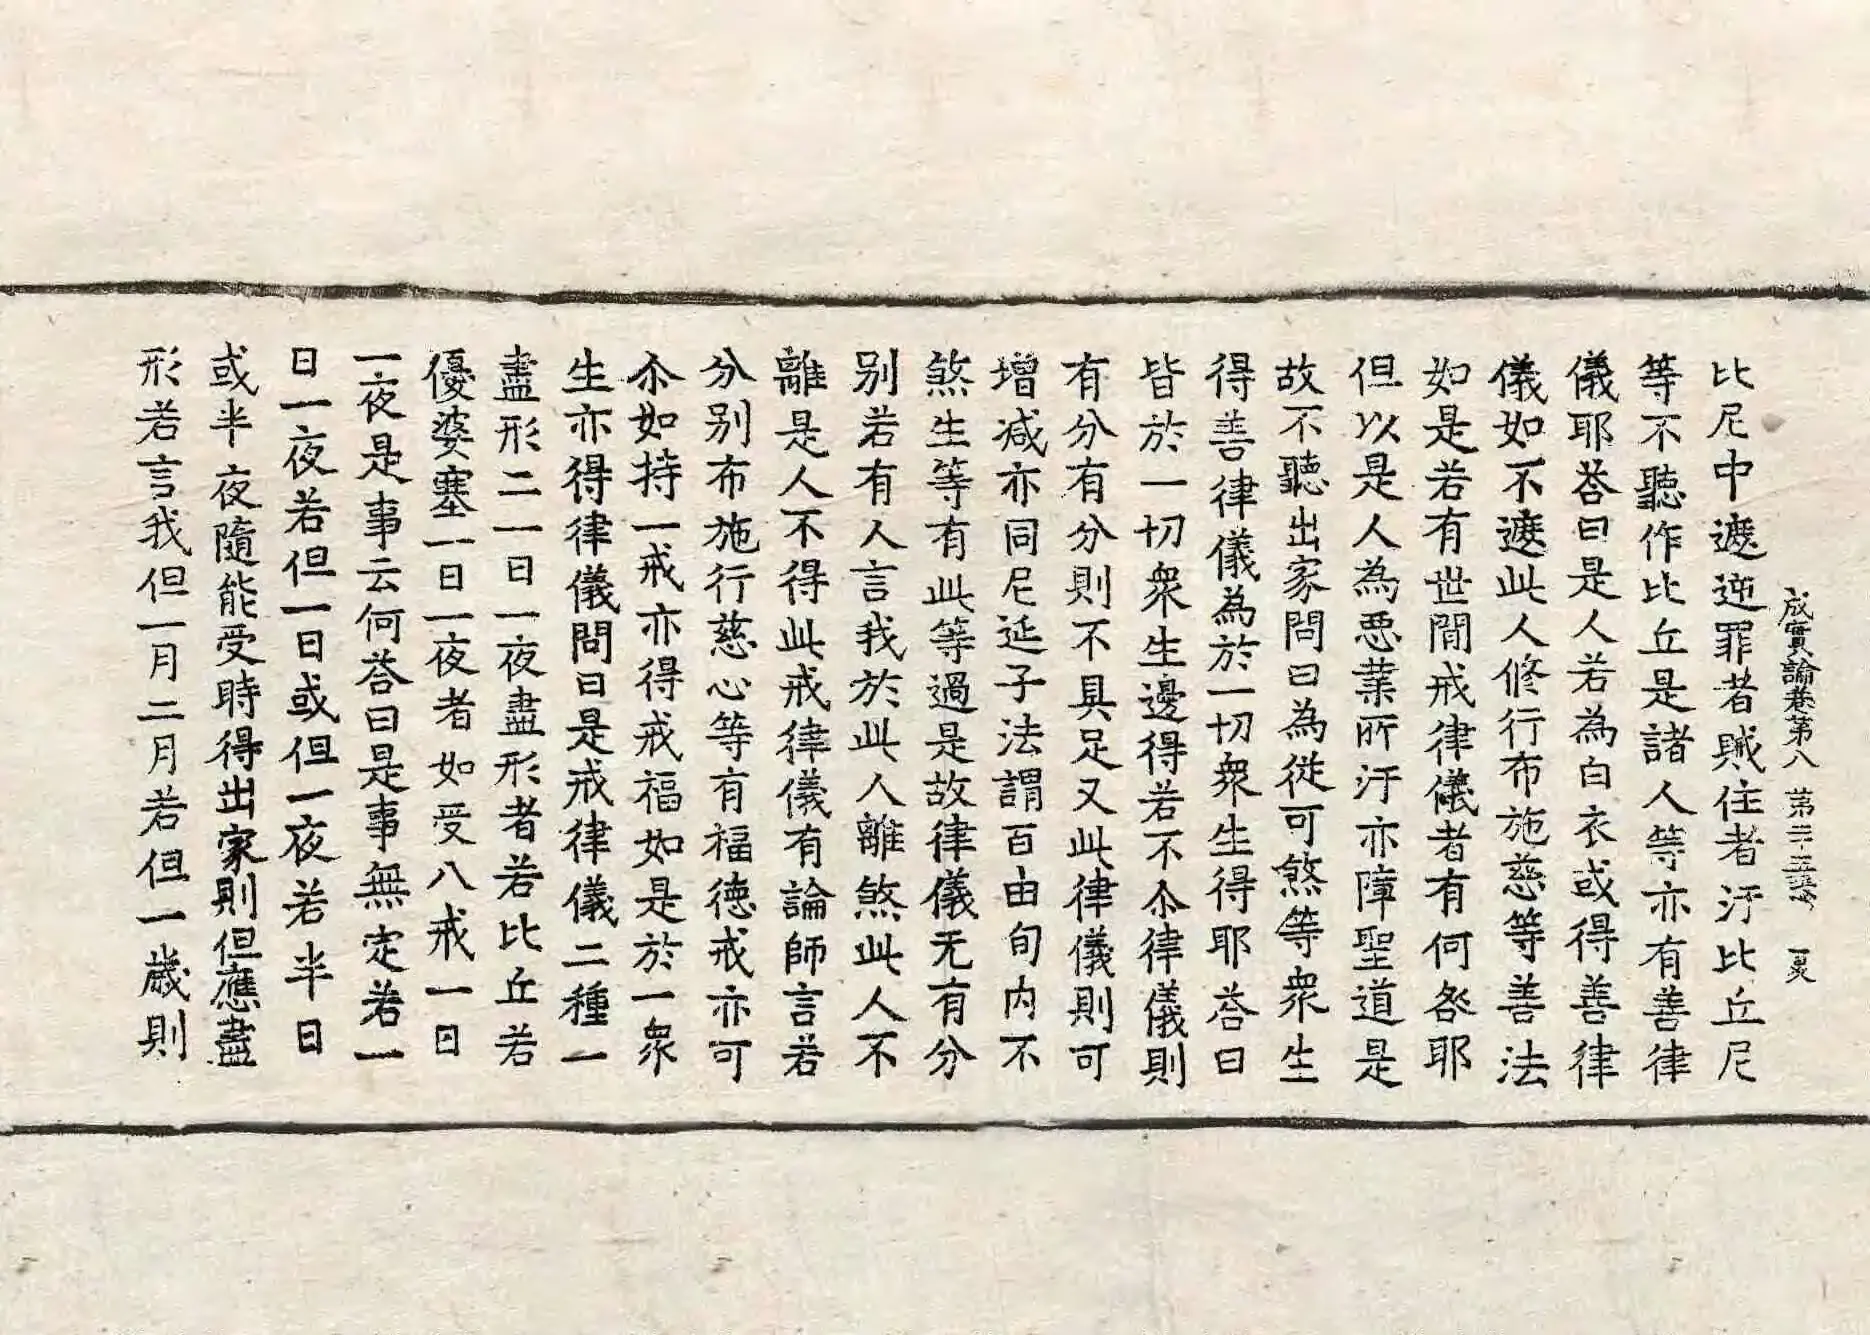 成實論卷第八 第二十五張 夏
比尼中遮逆罪者賊住者汙比丘尼
等不聽作比丘是諸人等亦有善律
儀耶荅曰是人若為白衣或得善律
儀如不遮此人修行布施慈等善法
如是若有世間戒律儀者有何咎耶
但以是人為惡業所汙亦障聖道是
故不聽出家問曰為從可煞等衆生
得善律儀為於一切衆生得耶荅曰
皆於一切衆生邊得若不尒律儀則
有分有分則不具足又此律儀則可
增减亦同尼延子法謂百由旬内不
煞生等有此等過是故律儀无有分
别若有人言我於此人離煞此人不
離是人不得此戒律儀有論師言若
分别布施行慈心等有福德戒亦可
尒如持一戒亦得戒福如是於一衆
生亦得律儀問曰是戒律儀二種一
盡形二一日一夜盡形者若比丘若
優婆塞一日一夜者如受八戒一日
一夜是事云何荅曰是事無定若一
日一夜若但一日或但一夜若半日
或半夜隨能受時得出家則但應盡
形若言我但一月二月若但一歲則